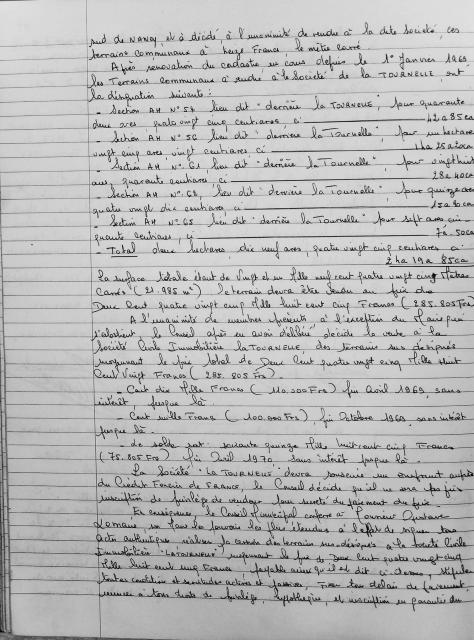 sud de NANCY, et à décidé à l'unanimité de vendre à la dite Société, ces
terrains communaux à treize Francs, le mètre carré.
Après rénovation du cadastre en cours depuis le 1° Janvier 1969,
les Terrains communaux à vendre à la Société de la TOURNELLE, ont
la désignation suivante :
- Section AH N° 57 lieu dit "derrière la TOURNELLE", pour quarante
deux ares quatre vingt cinq centiares, ci 42a 85ca
- Section AH N° 58 lieu dit "derrière la Tournelle", pour un hectare
vingt cinq ares, vingt centiares ci 1ha 25a 20ca
- Section AH N° 61 lieu dit "derrière la Tournelle", pour vingt huit
ares, quarante centiares, ci 28a 40ca
- Section AH N° 62, lieu dit "derrière la Tournelle" pour quinze ares
quatre vingt dix centiares ci
- Section AH N° 65 lieu dit "derrière la Tournelle" pour sept ares cin-
quante centiares, ci 7a 50ca
- Total deux hectares dix neuf ares, quatre vingt cinq centiares ci
2ha 19a 85ca
La surface totale étant de Vingt et un Mille neuf cent quatre vingt cinq Mètres
Carrés (21.985 m²) le terrain devra être vendu au prix de
Deux Cent quatre vingt cinq Mille huit cent cinq Francs (285.805 Frs)
A l'unanimité des membres présents à l'exception du Maire qui
s'abstient, le Conseil après en avoir délibéré décide la vente à la
Société Civile Immobilière la TOURNELLE, des terrains sus désignés
moyennant le prix total de Deux Cent quatre vingt cinq Mille huit
Cent Vingt Francs (285.805 Frs).
- Cent dix Mille Francs (110.000 Frs) fin Avril 1969, sans
intérêt jusque là
- Cent mille Francs (100.000 Frs), fin Octobre 1969, sans intérêt
jusque là.
- Le solde soit : soixante quinze Mille huit cent cinq Francs
(75.805 Frs) fin Avril 1970 sans intérêt jusque là.
La Société "La TOURNELLE" devra souscrire un emprunt auprès
du Crédit Foncier de FRANCE, le Conseil décide qu'il ne sera pas pris
inscription de privilège de vendeur pour sûreté du paiement du prix.
En conséquence, le Conseil Municipal confère à Monsieur Gustave
Lemaire, tous les pouvoirs les plus étendus à l'effet de signer tous
actes authentiques réalisant la cession des terrains sus-désignés à la Société Civile
Immobilière "LATOURNELLE" moyennant le prix de Deux Cent quatre vingt cinq
Mille huit cent cinq Francs, payable ainsi qu'il est dit ci-dessus, stipuler
toutes conditions et servitudes actives et passives, fixer tous délais de paiement,
renoncer à tous droits de privilège, hypothèque, et inscription en garantie du